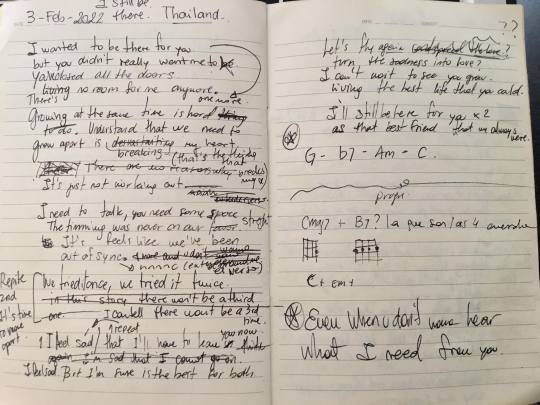 I still be.
3-Feb-2022 there. Thailand.
I wanted to be there for you
but you didn't really want me to
You closed all the doors
living no room for me anymore.
There's one more.
Growing at the same time is hard
to do. Understand that we need to
grow apart is devastating my heart,
breaking (that's the thing
There are no reasons why that breaks
my
It's just not working out
I need to talk, you need some space
The timming was never on our favor.
It's feels like we've been
out of sync.
nnnc
We tried once, we tried it twice
in this story there won't be a third
one. I can tell there won't be a 3rd
time.
I need you now.
I feel sad that I'll have to leave
again I'm sad that I cannot go on.
I feel sad. But I'm sure is the best for both
Repite
2nd
It's time
to move
apart.
??
Let's fly again spread the love?
turn the sadness into love?
I can't wait to see you grow.
Living the best life that you could.
I'll still be here for you x2
as that best friend that we always
were.
G - b7 - Am - C.
Cmaj7 + B7? la que son las 4
C + Em +
Even when u don't wanna hear
What I need from you